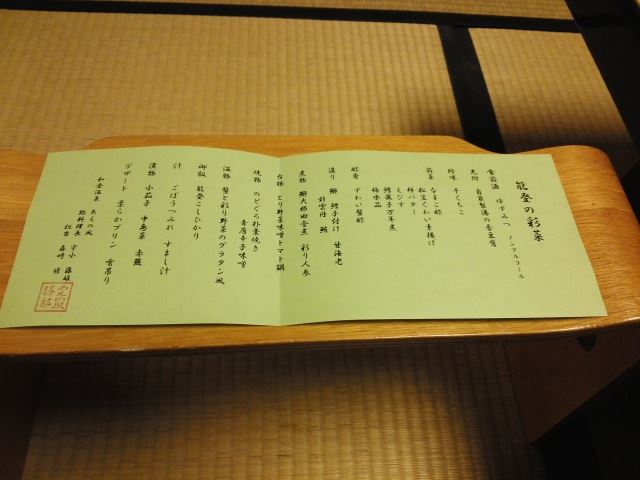 能登の彩菜
食前酒 ゆずみつ ノンアルコール
先附 自家製湯の香豆腐
珍味 干くちこ
前菜 なまこ酢
松笠くわい素揚げ
柿バター
えびす
鱈真子万年煮
梅水晶
酢肴 ずわい蟹酢
造り 鰤 鱈子付け 甘海老
針雲丹 鮪
煮物 鰤大根田舎煮 彩り人参
台物 とり野菜味噌トマト鍋
焼物 のどぐろ朴葉焼き
青唐辛子味噌
温物 蟹と彩り野菜のグラタン風
御飯 能登こしひかり
汁 ごぼうつみれ すまし汁
漬物 小茄子 中島菜 赤蕪
デザート 柔らかプリン 雪吊り
和倉温泉 あえの風
総料理長 宇小 藤雄
担当 森崎 修
あえの風